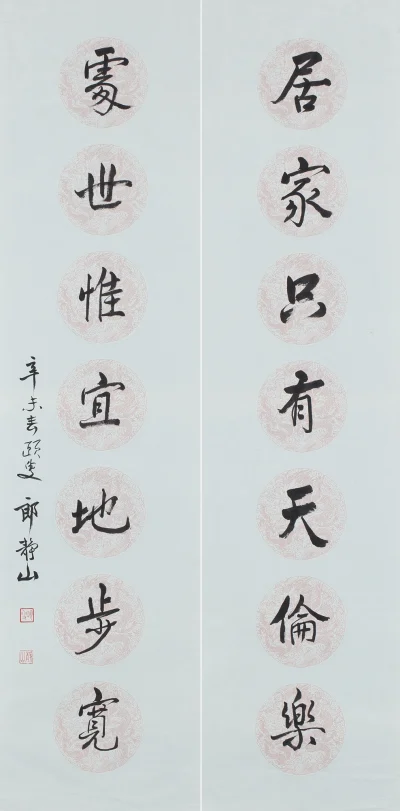 居家只有天倫樂
處世惟宜地步寬
辛未春頤叟郎靜山